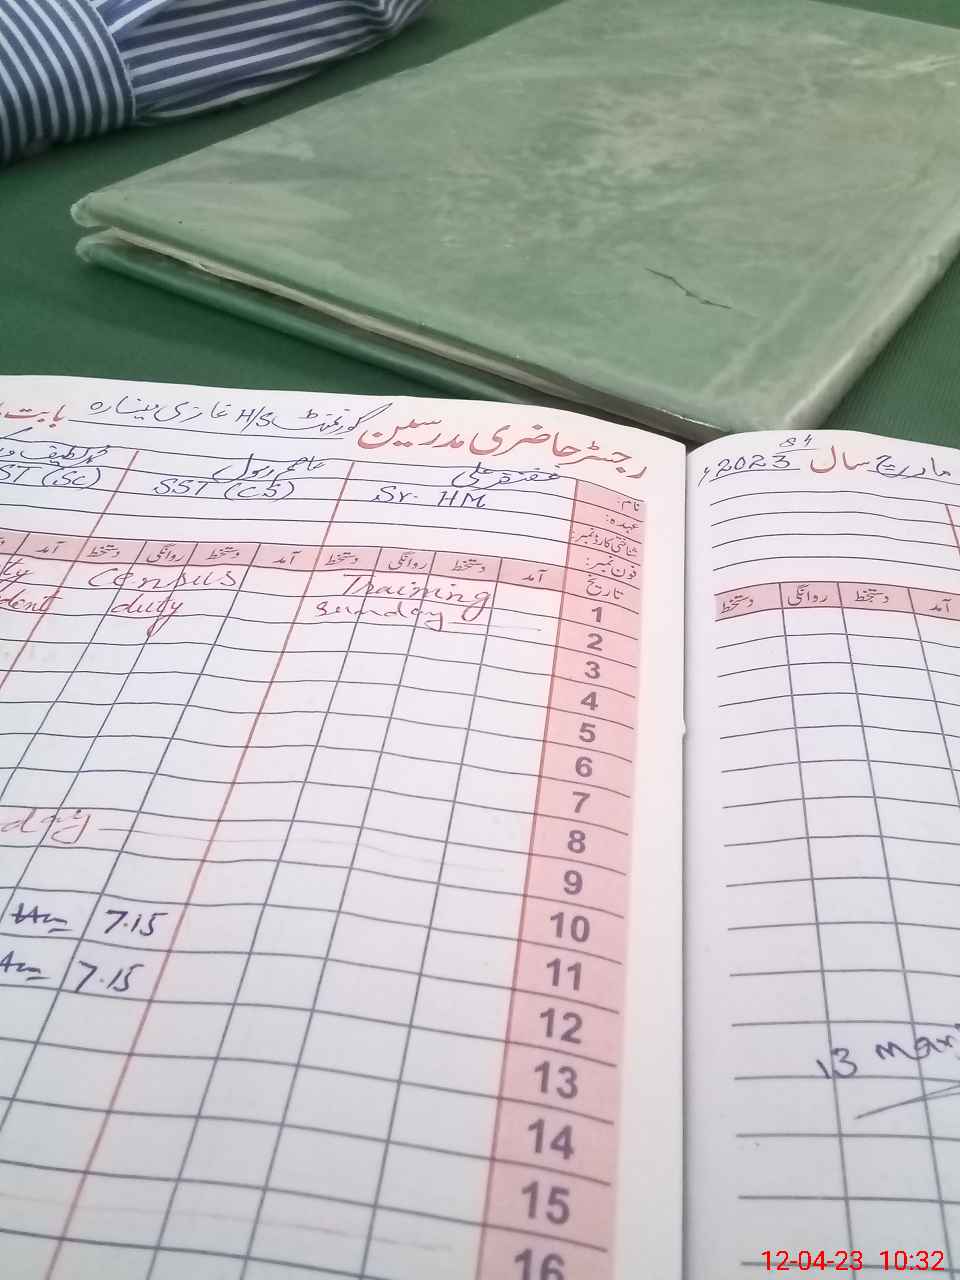 رجسٹر حاضری مدرسین گورنمنٹ H/S غازی مینارہ بابت
نام:
عہدہ: Sr. HM SST (CS) SST (Sc)
شناختی کارڈ نمبر:
فون نمبر:
تاریخ آمد دستخط روانگی دستخط آمد دستخط روانگی دستخط آمد
1 Training Census
2 Sunday duty
3
4
5
6
7
8
9
10 7.15
11 7.15
12
13
14
15
16
مارچ سال 2023ء
آمد دستخط روانگی دستخط
13
12-04-23 10:32